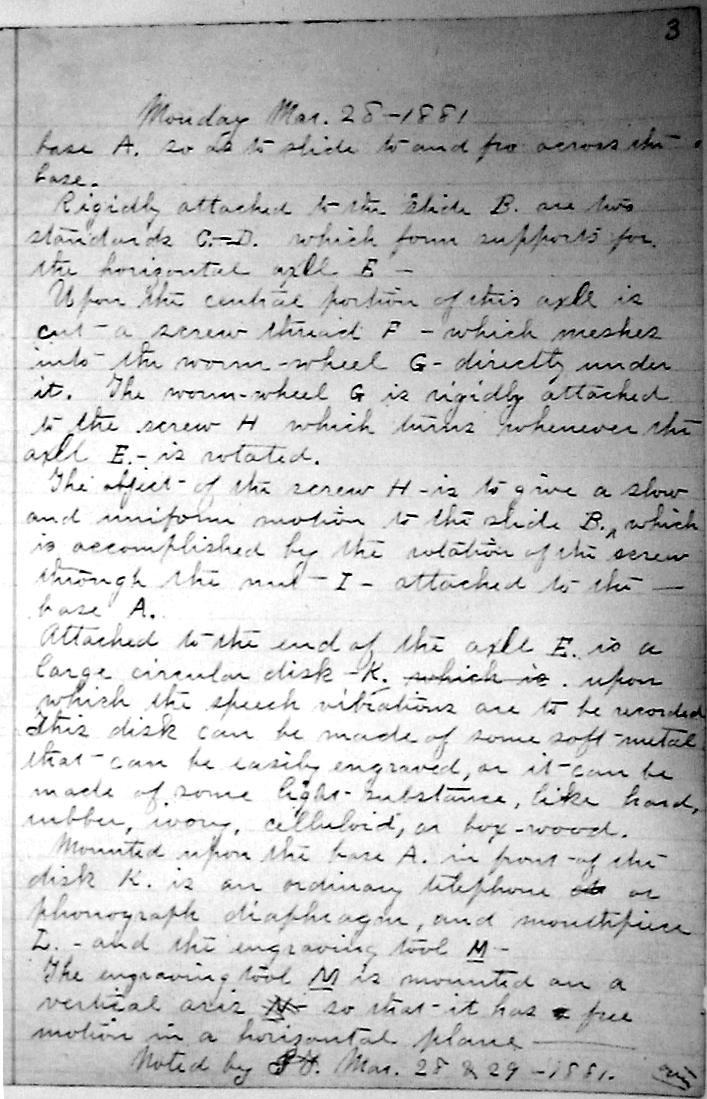 3
Monday Mar. 28-1881
base A. so as to slide to and fro across the
base.
Rigidly attached to the slide B. are two
standards C.-D. which form supports for
the horizontal axll E -
Upon the central portion of this axll is
cut a screw thread F - which meshes
into the worm-wheel G- directly under
it. The worm-wheel G is rigidly attached
to the screw H which turns whenever the
axll E.- is rotated.
The object of the screw H - is to give a slow
and uniform motion to the slide B. which
is accomplished by the rotation of the screw
through the nut - I - attached to the —
base A.
Attached to the end of the axll E. is a
large circular disk - K. which is. upon
which the speech vibrations are to be recorded
This disk can be made of some soft metal
that can be easily engraved, or it can be
made of some light substance, like hard,
rubber, ivory, celluloid, or box-wood.
Mounted upon the base A. in front of the
disk K. is an ordinary telephone or
phonograph diaphragm, and mouthpiece
L. - and the engraving tool M -
The engraving tool M is mounted on a
vertical axis N so that it has a free
motion in a horizontal plane —
Noted by Mar. 28 & 29 - 1881.